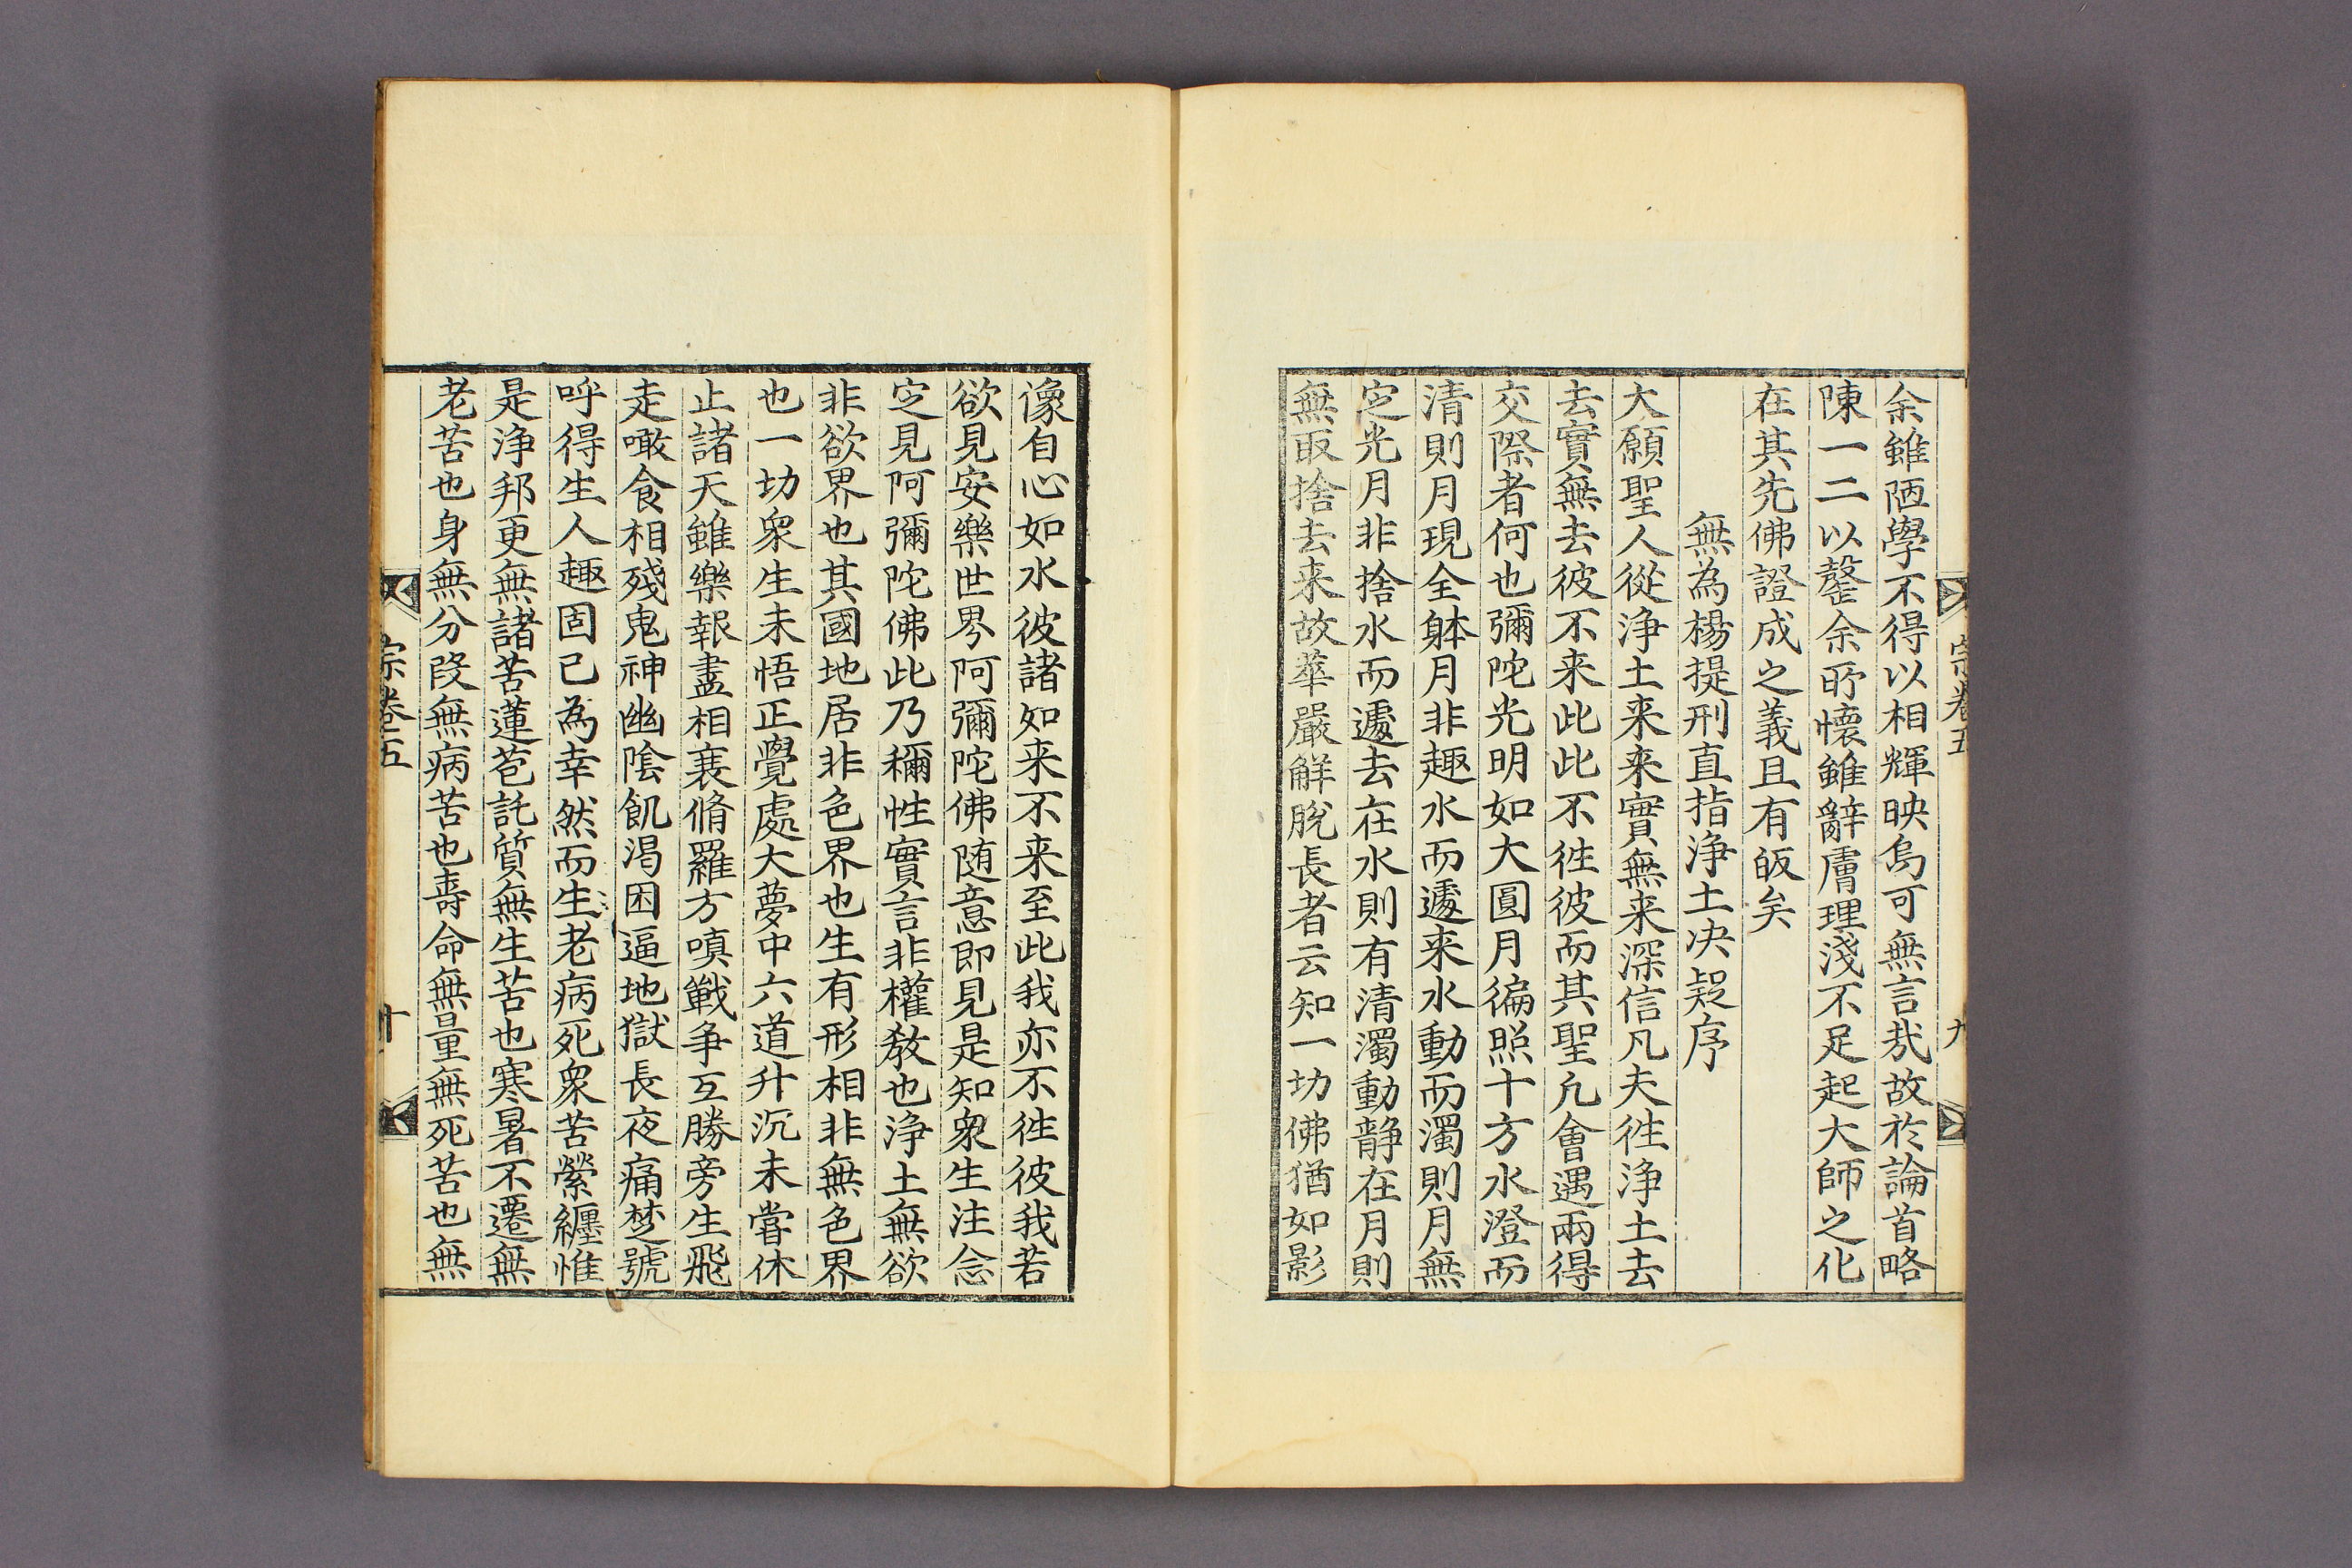 宗卷五　九
余雖陋學不得以相輝映烏可無言㦲故於論首略
陳一二以罄余所懷雖辭膚理淺不足起大師之化
在其先佛證成之義且有皈矣
無為楊提刑直指淨土决疑序
大願聖人從淨土来来實無来深信凡夫徃淨土去
去實無去彼不来此此不徃彼而其聖凡會遇兩得
交際者何也彌陀光明如大圓月徧照十方水澄而
清則月現全躰月非趣水而遽来水動而濁則月無
㝎光月非捨水而遽去在水則有清濁動靜在月則
無取捨去来故華嚴解脫長者云知一切佛猶如影
像自心如水彼諸如来不来至此我亦不徃彼我若
欲見安樂世界阿彌陀佛随意即見是知衆生注念
㝎見阿彌陀佛此乃稱性實言非權教也淨土無欲
非欲界也其國地居非色界也生有形相非無色界
也一切衆生未悟正覺處大夢中六道升沉未嘗休
止諸天雖樂報盡相衰脩羅方嗔戰争互勝旁生飛
走噉食相殘鬼神幽陰飢渴困逼地獄長夜痛楚號
呼得生人趣固已為幸然而生老病死衆苦縈纏惟
是淨邦更無諸苦蓮苞託質無生苦也寒暑不遷無
老苦也身無分段無病苦也壽命無量無死苦也無
宗卷五　十